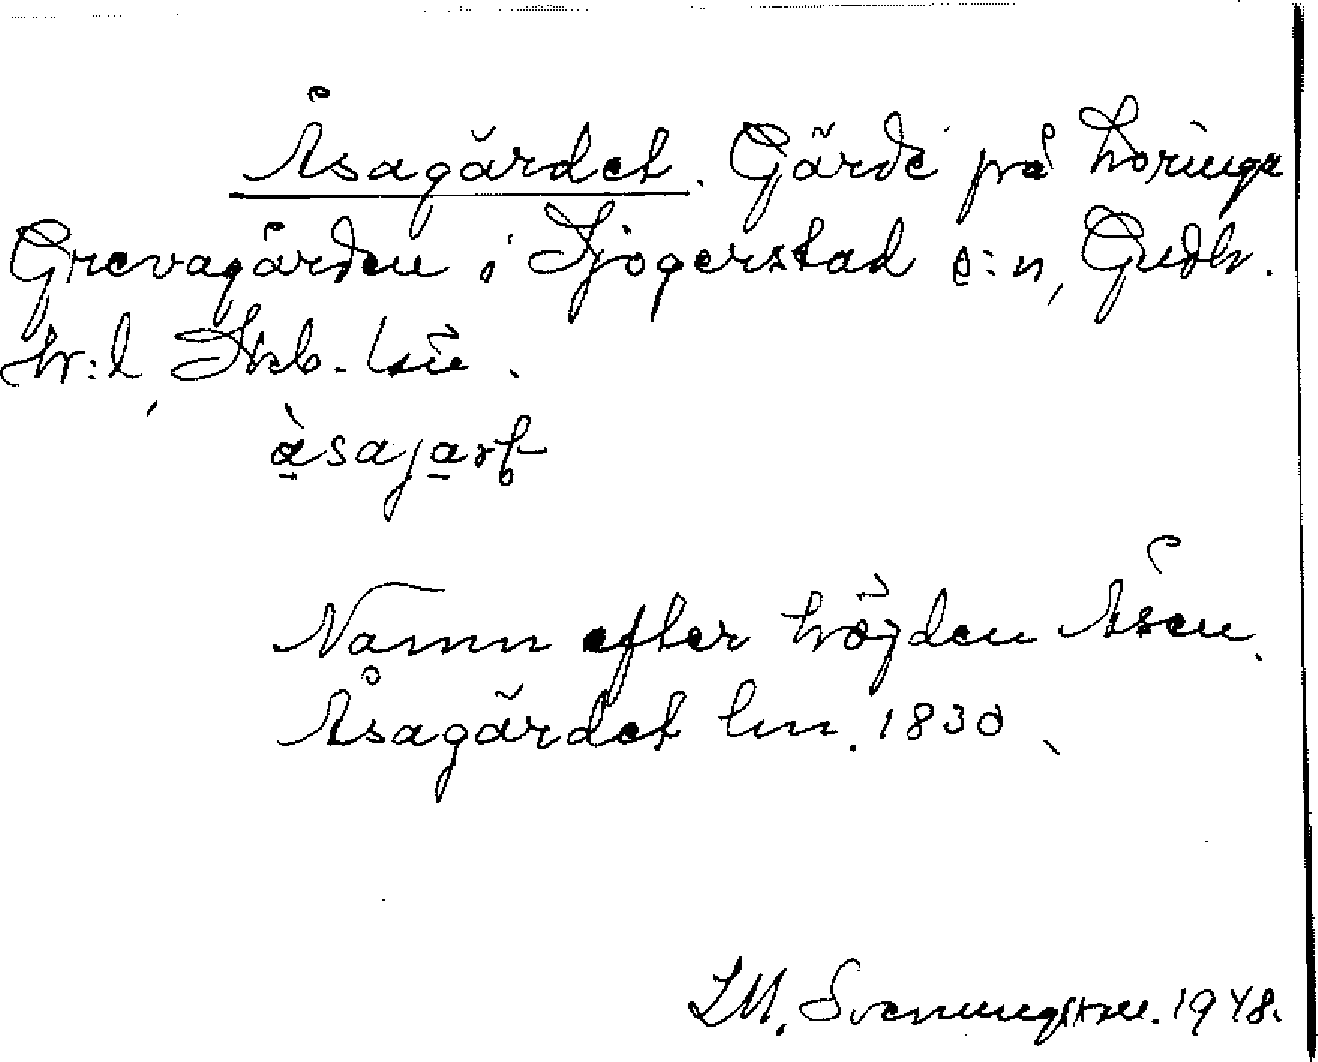 Åsagärdet. Gärde på Horinga
Grevagården i Sjogerstad s:n, Gudh.
hr:d, Skb. län.
åsajart
Namn efter höjden Åsen.
Åsagärdet lm. 1830.
I.M. Svenungsson. 1948.